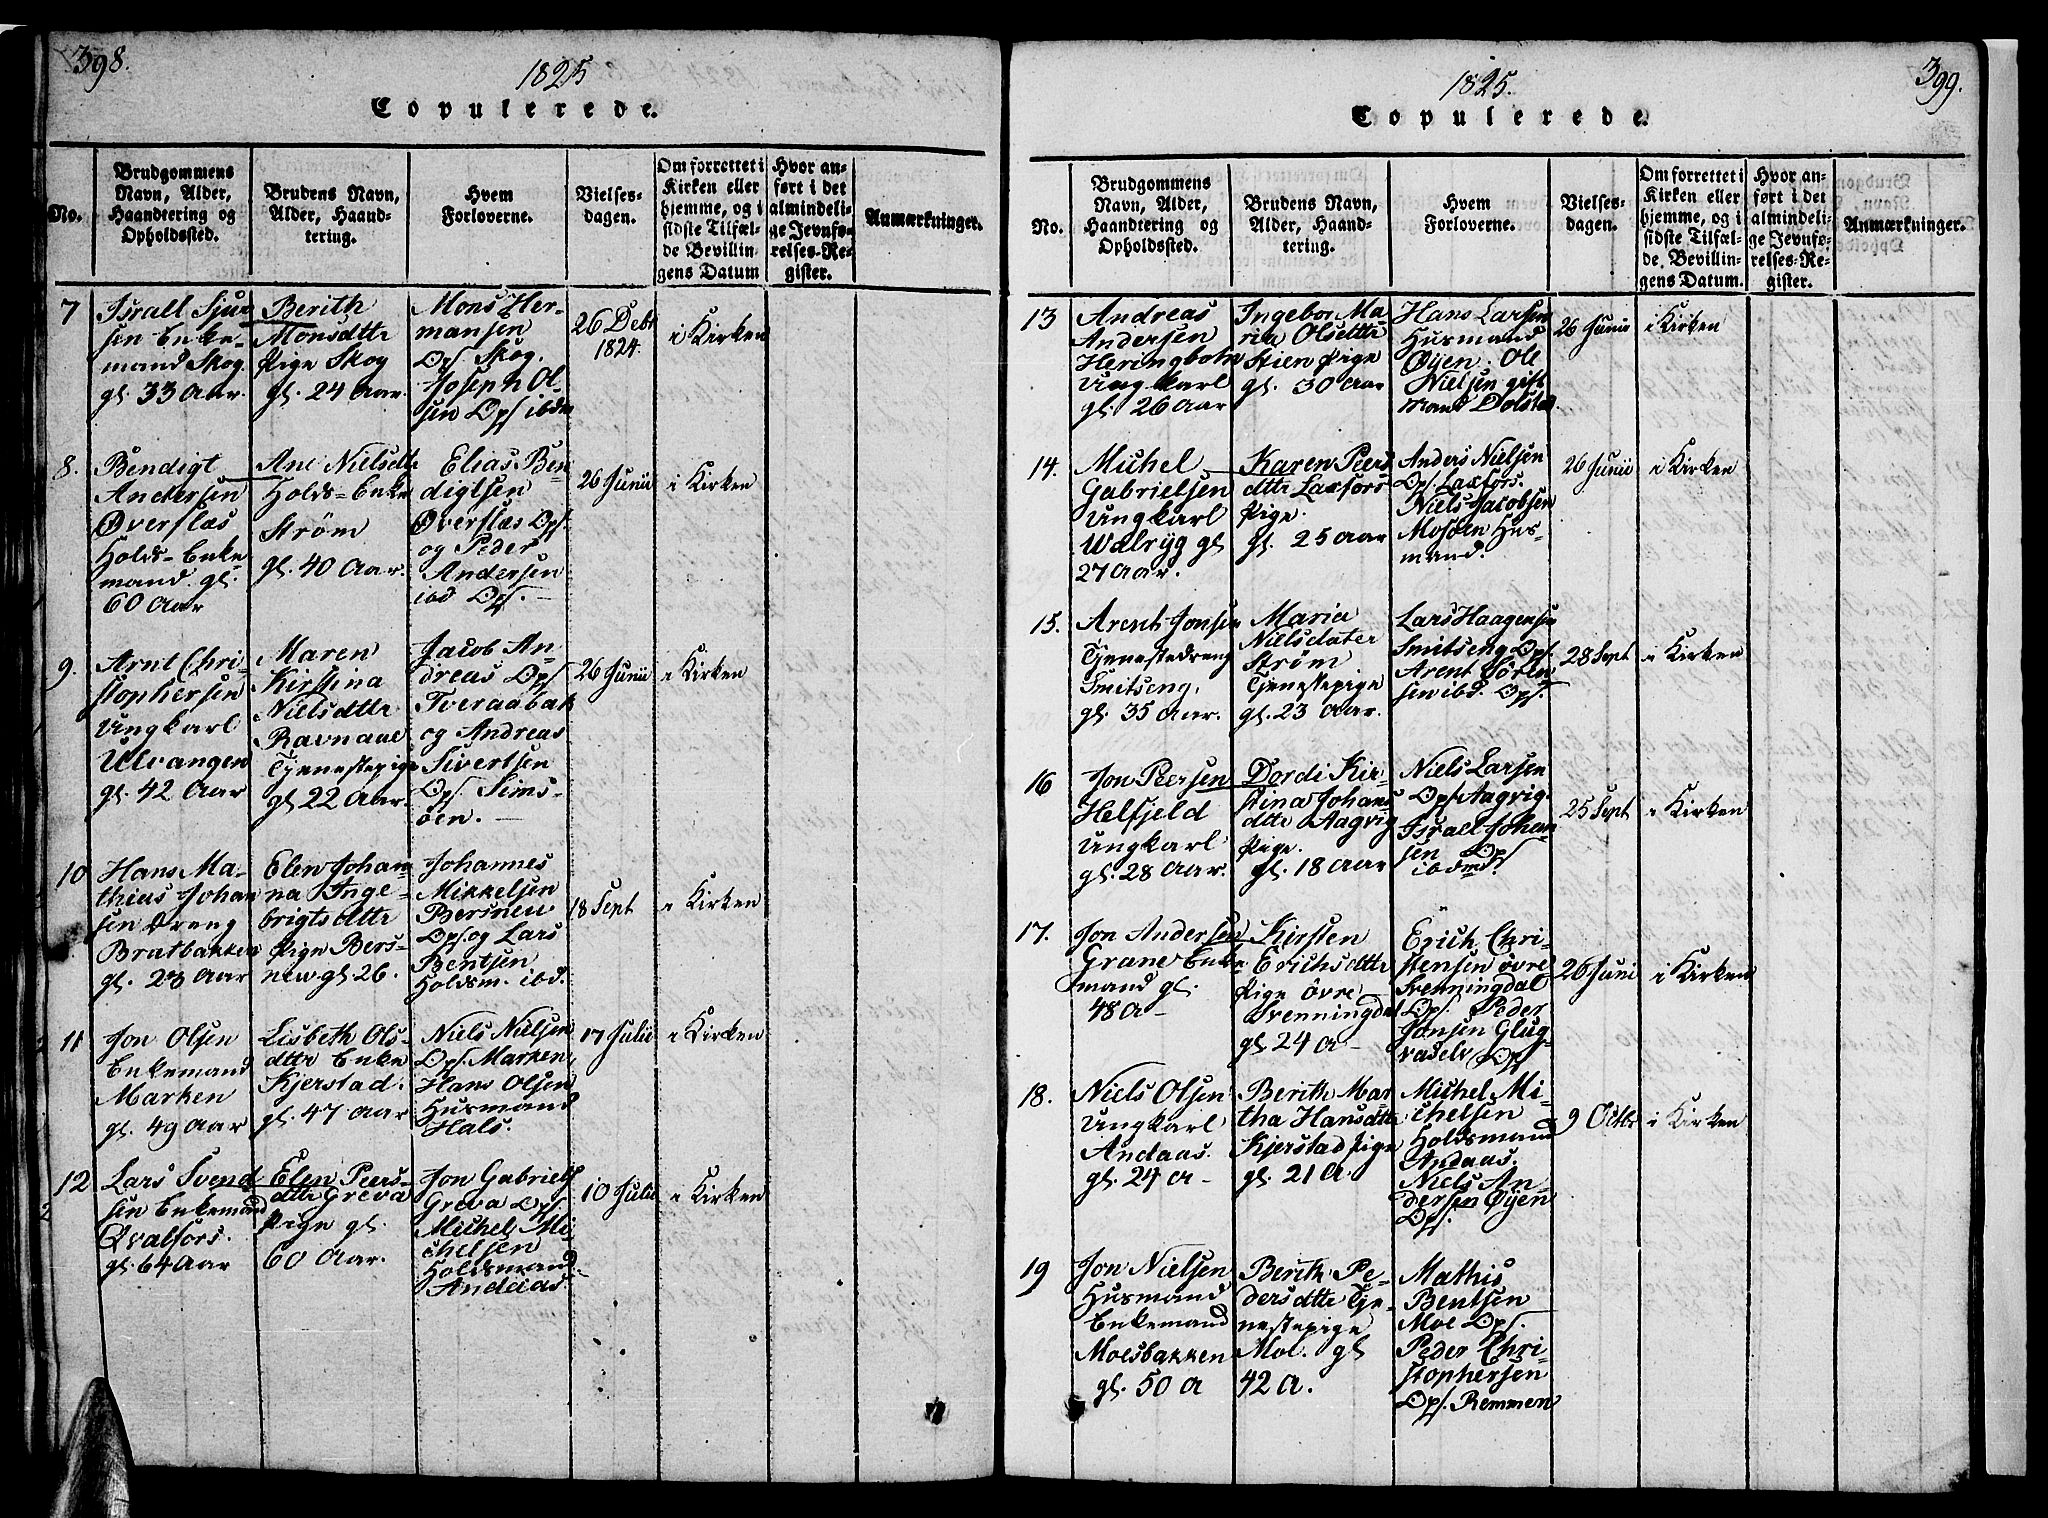 398.
1825
Copulerede.
No.
Brudgommens Navn, Alder, Haandtering og Opholdssted.
Brudens Navn, Alder, Haandtering.
Hvem Forloverne.
Vielsesdagen.
Om forrettet i Kirken eller hjemme, og i sidste Tilfælde Bevillingens Datum
Hvor anført i det almindelige Jevnførelses-Register.
Anmærkninger.
7
Israll Sjur
sen Enke-
mand Skog
gl. 33 Aar.
Berith
Monsdttr
Pige Skog
gl. 24 Aar.
Mons Her-
mansen
Ops. Skog.
Joseph Ol-
sen Ops ibdm
26 Debr
1824.
i Kirken
8.
Bendigt
Andersen
Øverslæs
Holds-Enke
mand. gl.
60 Aar
Ane Nielsdttr
Holds-Enke
Strøm
gl. 40 Aar.
Elias Ben
digtsen
Øverslæs Ops.
og Peder
Andersen
ibd Ops.
26 Junii
i Kirken
9.
Arnt Chri-
stophersen
Ungkarl
Ulvangen
gl. 42 Aar
Maren
Kirstina
Nielsdttr
Ravnaae
Tjenestepige
gl 22 Aar.
Jacob An-
dreas Ops
Tveraabak
og Andreas
Sivertsen
Ops. Sims-
öen.
26 Junii
i Kirken
10
Hans Ma-
thias Johan
sen Dreng
Bratbakken
gl. 28 Aar
Elen Johan
na Inge-
brigtsdttr
Pige Bers-
new gl 26.
Johannes
Mikkelsen
Bersneu
Ops. og Lars
Bentsen
Holdsm. ibd.
18 Sept
i Kirken
11
Jon Olsen
Enkemand
Marken
gl. 49 Aar
Lisbeth Ols-
dttr Enke
Kjerstad.
gl. 47 Aar
Niels Nielsen
Ops. Marken,
Hans Olsen
Husmand
Hals.
17 Julii
i Kirken
12
Lars Svend
sen Enkemand
Qvalfors.
gl. 64 Aar
Elen Peers-
dttr Greva
Pige gl.
60 Aar.
Jon Gabriels
Greva Ops.
Michel Mi
chelsen
Holdsmand
Andaas.
10 Julii
i Kirken
399.
1825.
Copulerede.
No.
Brudgommens Navn, Alder, Haandtering og Opholdssted.
Brudens Navn, Alder, Haandtering.
Hvem Forloverne.
Vielsesdagen.
Om forrettet i Kirken eller hjemme, og i sidste Tilfælde Bevillingens Datum.
Hvor anført i det almindelige Jevnførelses-Register.
Anmærkninger.
13
Andreas
Andersen
Heringbotn
Ungkarl
gl. 26 Aar
Ingebor Ma
ria Olsdttr
Stien Pige
gl. 30 Aar
Hans Larsen
Husmand
Øÿen. Ole
Nielsen gift
mand Dolstad
26 Junii
i Kirken
14.
Michel
Gabrielsen
Ungkarl
Walrÿg gl
27 Aar.
Karen Peers
dttr Laxfors
Pige.
gl. 25 Aar
Anders Nielsen
Ops. Laxfors.
Niels Jacobsen
Mosöen Hus-
mand.
26 Junii
i Kirken
15.
Arent Jonsen
Tjenestedreng
Smitseng.
gl. 35 Aar.
Maria
Nielsdater
Strøm
Tjenestepige
gl. 23 Aar.
Lars Haagensen
Smitseng Ops.
Arent Sören
sen ibd. Ops.
28 Sept
i Kirken
16
Jon Peersen
Helfjeld
Ungkarl
gl. 28 Aar.
Dordi Kir-
stina Johans
dttr Aagvig
Pige.
gl. 18 Aar
Niels Larsen
Ops. Aagvig.
Israel Johan
sen Ops
ibdm.
25 Sept
i Kirken
17.
Jon Andersen
Grane Enke
mand gl.
48 A
Kirsten
Erichsdttr
Pige övre
Svenningdal
gl 24 A
Erich Chri-
stensen övre
Svenningdal
Ops. Peder
Jonsen Glug-
vaselv Ops
26 Juni
i Kirken
18.
Niels Olsen
Ungkarl
Andaas.
gl. 24 A
Berith Mar
tha Hansdttr
Kjerstad Pige
gl. 21 A.
Michel Mi-
chelsen
Holdsmand
Andaas.
Niels An-
dersen Øÿen
Ops.
9 Octbr
i Kirken
19
Jon Nielsen
Husmand
Enkemand
Moesbakken
gl. 50 A
Berith Pe-
dersdttr Tje-
nestepige
Moe. gl
42 A.
Mathis
Bentsen
Moe Ops.
Peder Chri-
stophersen
Ops. Remmen